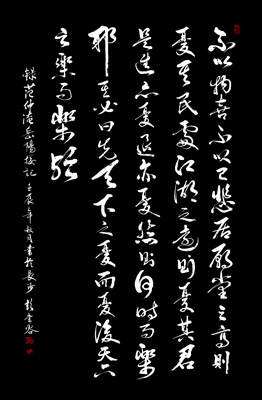 不以物喜不以己悲居廟堂之高則
憂其民處江湖之遠則憂其君
是進亦憂退亦憂然則何時而樂
耶其必曰先天下之憂而憂後天下
之樂而樂歟
錄范仲淹岳陽樓記 壬辰年秋月書於長沙